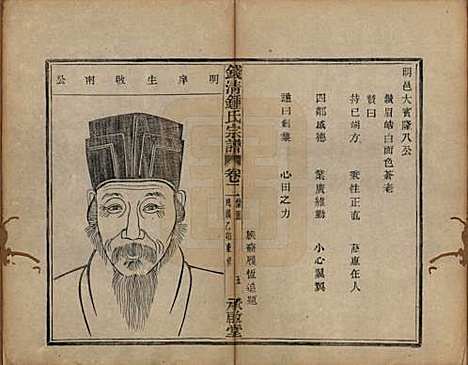 明邑大賓隆八公
鬚眉皓白面色蒼老
贊曰
持己端方 秉性正直 慈惠在人
四鄰感德 業廣維勤 小心翼翼
謹曰創業 心田之力
族裔履恆追題
錢清鍾氏宗譜 卷二
五 承啟堂
明庠生敬南公